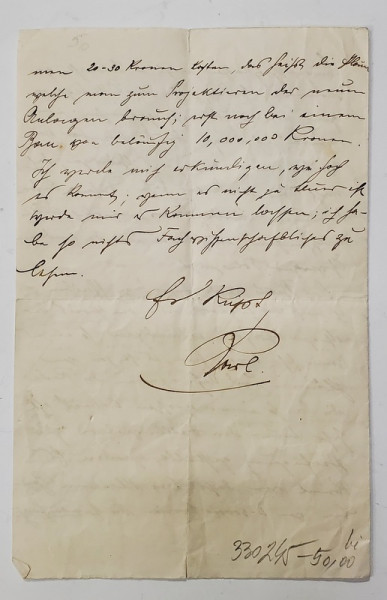 man 20-30 Kronen kosten, das heißt die Pläne
welche man zum Projektieren der neuen
Anlagen braucht; erst noch bei einem
Bau von beläufig 10,000,000 Kronen.
Ich werde mich erkundigen, wie hoch
es kommt; wenn es nicht zu teuer ist
werde mir es kommen lassen; ich ha-
be so nichts Fachwissenschaftliches zu
lesen.
Es
Karl.
330245-50,00
bi